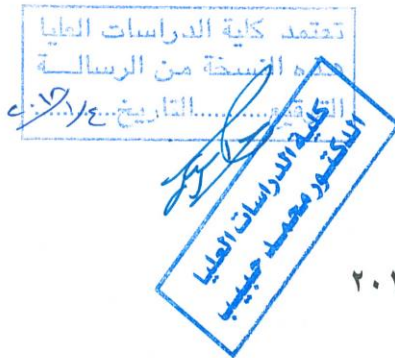 تعتمد كلية الدراسات العليا
هذه النسخة من الرسالــة
التوقيع.........التاريخ
كلية الدراسات العليا
الدكتور محمد حبيب
٢٠١